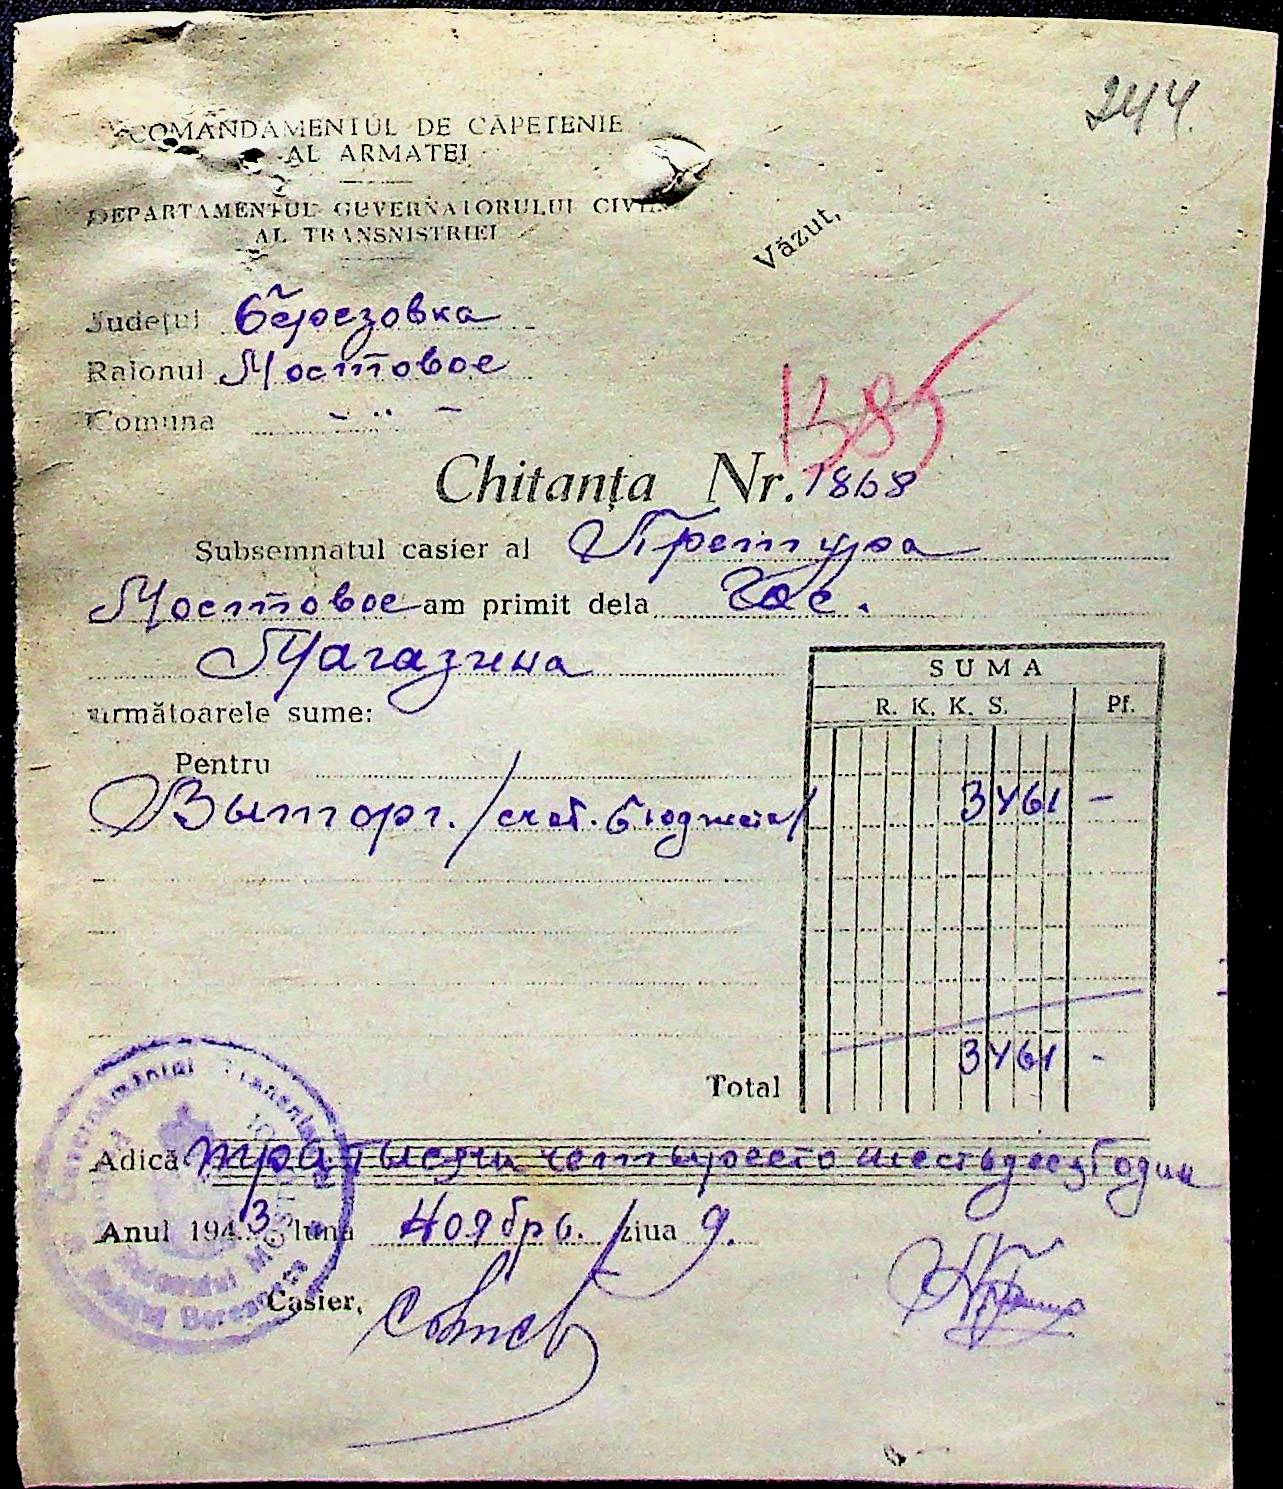 244.
COMANDAMENTUL DE CĂPETENIE
AL ARMATEI
DEPARTAMENTUL GUVERNATORULUI CIVIL
AL TRANSNISTRIEI
Văzut,
Județul Березовка
Raionul Мостовое
Comuna - " -
385
Chitanța Nr. 1868
Subsemnatul casier al Претура
Мостовое am primit dela Гос.
Магазина
următoarele sume:
SUMA
R. K. K. S. Pf.
Pentru
Выторг. /счет. бюджета/ 3461 -
Total 3461 -
Adică три тысячи четыреста шестьдесят один
Anul 1943 luna Ноябрь. ziua 9.
Casier,